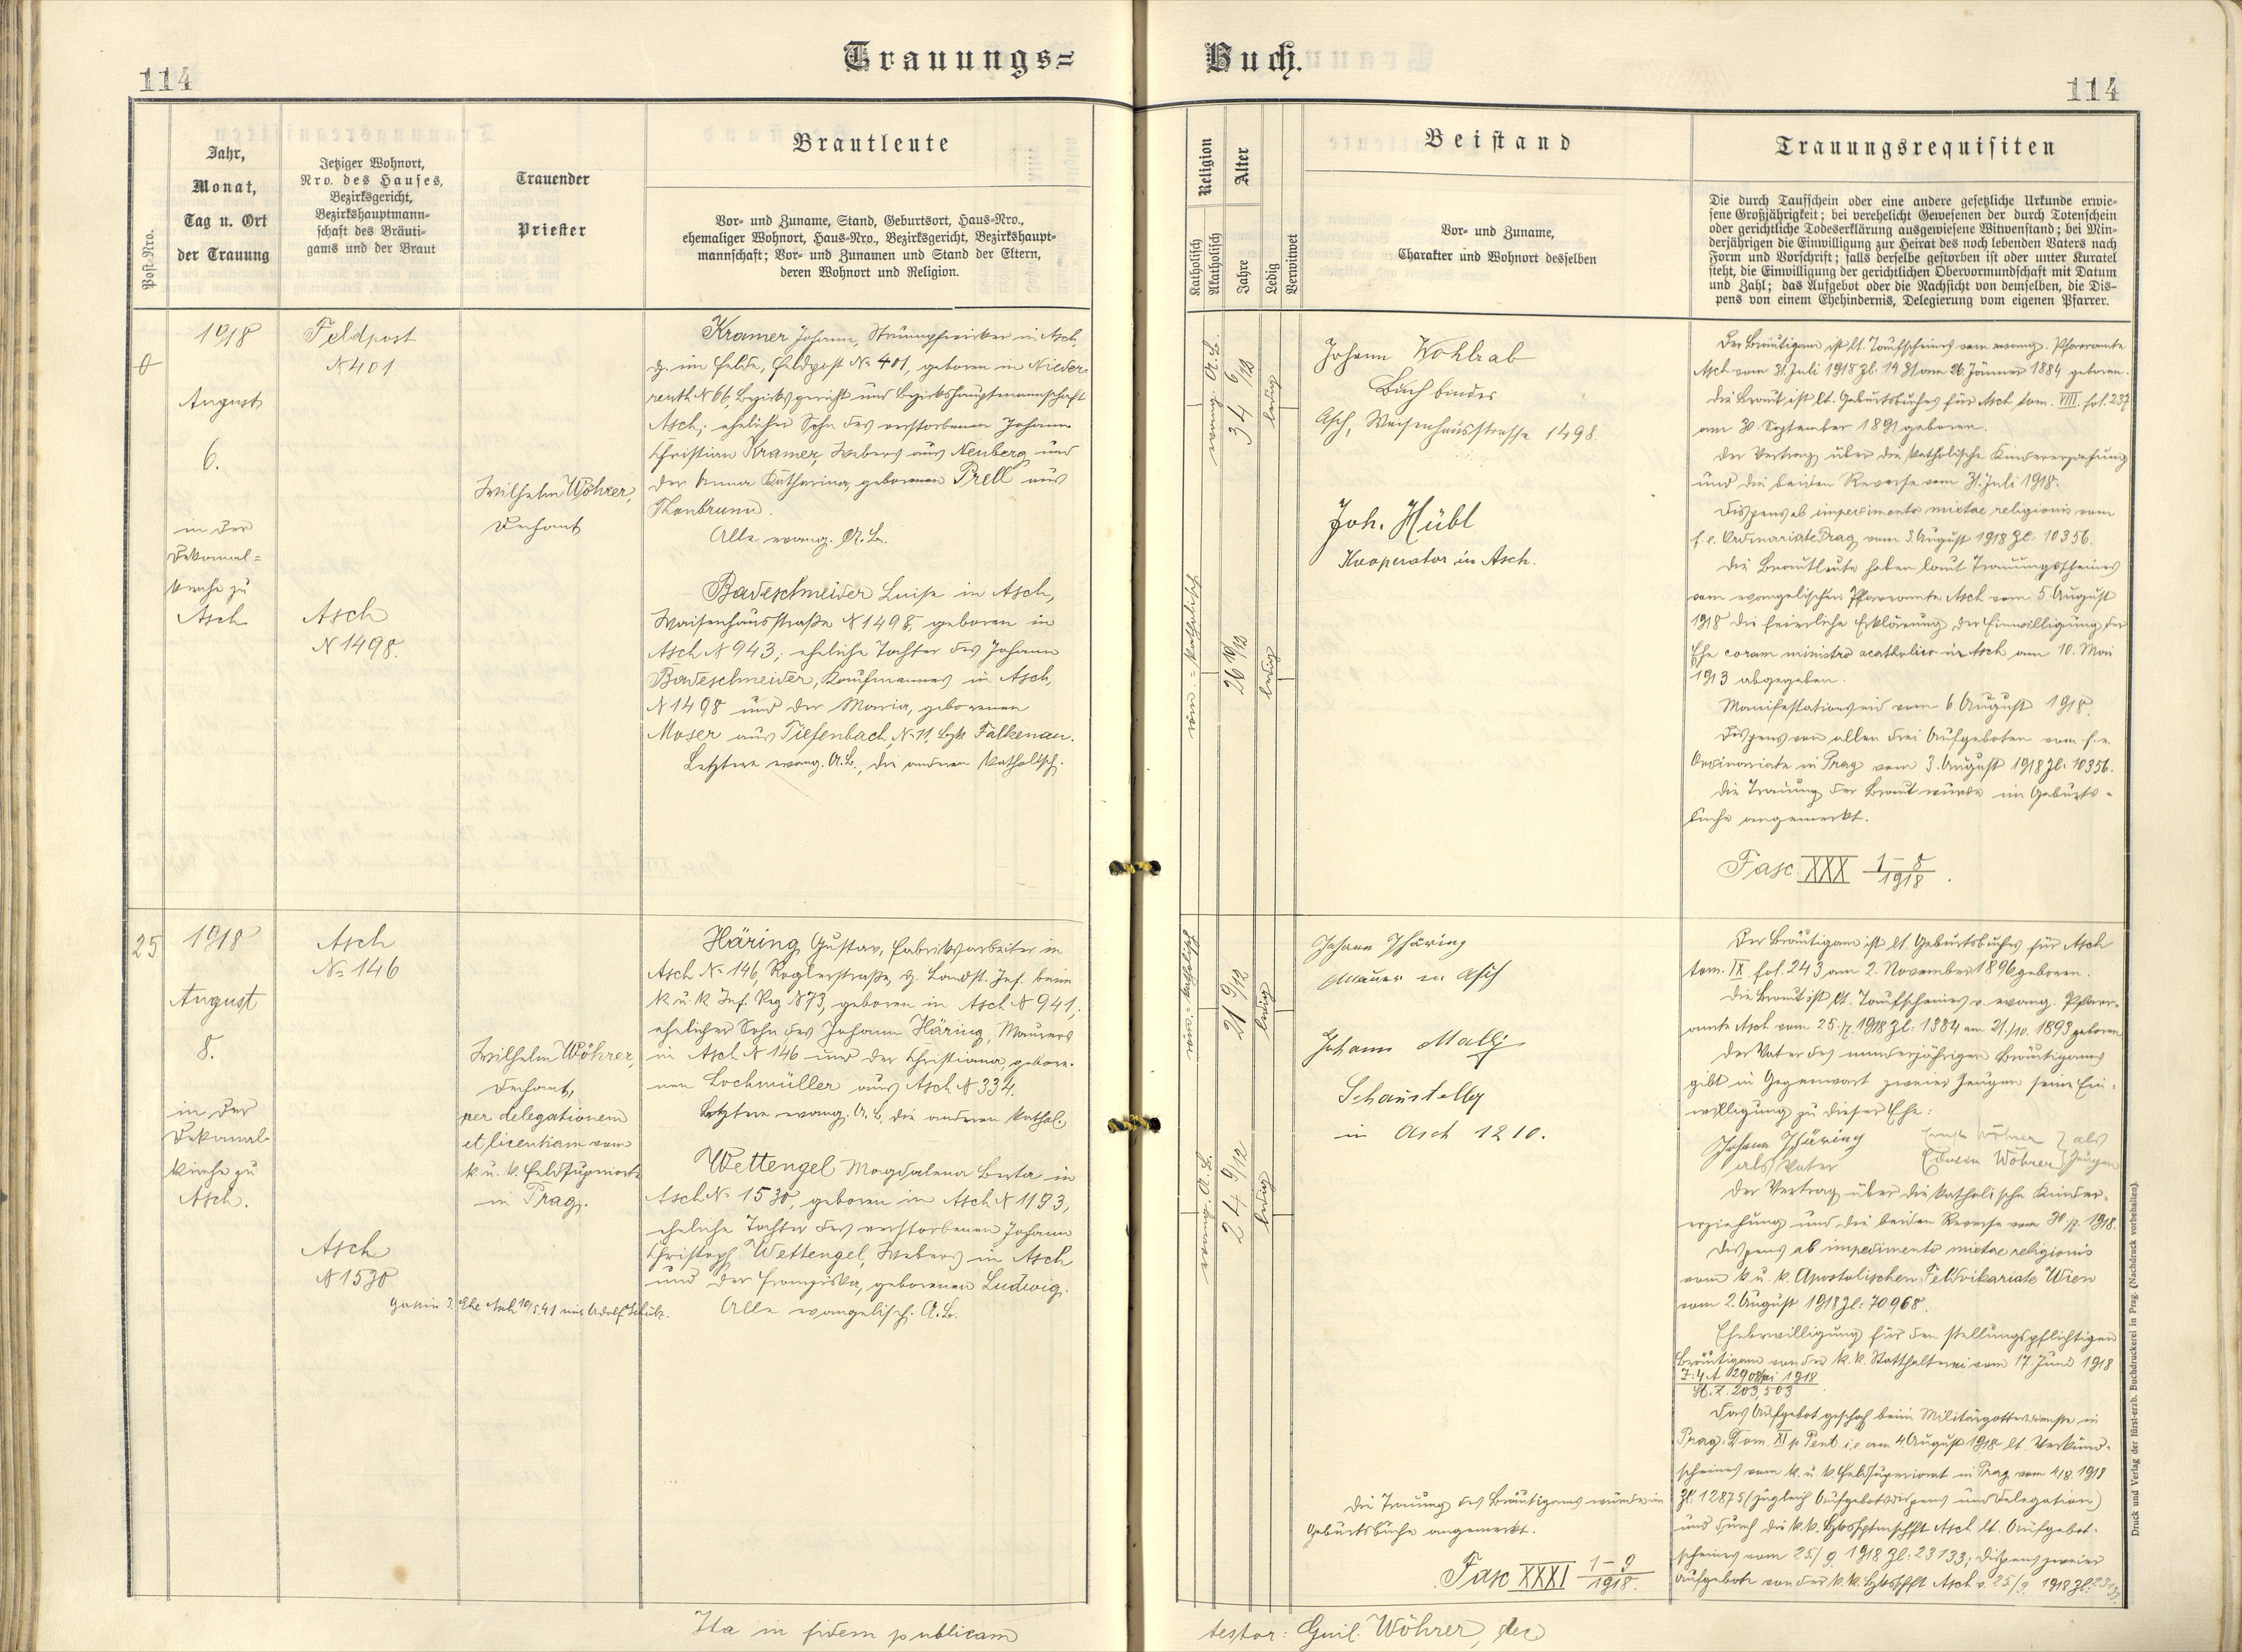 114
Trauungs=
Buch.
114
Post-Nro.
Jahr,
Monat,
Tag u. Ort
der Trauung
Jetziger Wohnort,
Nro. des Hauses,
Bezirksgericht,
Bezirkshauptmann-
schaft des Bräuti-
gams und der Braut
Trauender
Priester
Brautleute
Vor- und Zuname, Stand, Geburtsort, Haus-Nro.,
ehemaliger Wohnort, Haus-Nro., Bezirksgericht, Bezirkshaupt-
mannschaft; Vor- und Zunamen und Stand der Eltern,
deren Wohnort und Religion.
Religion
Katholisch
Akatholisch
Alter
Jahre
Ledig
Verwitwet
Beistand
Vor- und Zuname,
Charakter und Wohnort desselben
Trauungsrequisiten
Die durch Taufschein oder eine andere gesetzliche Urkunde erwie-
sene Großjährigkeit; bei verehelicht Gewesenen der durch Totenschein
oder gerichtliche Todeserklärung ausgewiesene Witwenstand; bei Min-
derjährigen die Einwilligung zur Heirat des noch lebenden Vaters nach
Form und Vorschrift; falls derselbe gestorben ist oder unter Kuratel
steht, die Einwilligung der gerichtlichen Obervormundschaft mit Datum
und Zahl; das Aufgebot oder die Nachsicht von demselben, die Dis-
pens von einem Ehehindernis, Delegierung vom eigenen Pfarrer.
1918
August
6.
in der
Dekanal=
kirche zu
Asch
Feldpost
N 401
Asch
N 1498.
Wilhelm Wöhrer,
Dechant
Kramer Johann, Strumpfwirker in Asch,
z. im Felde, Feldpost No 401, geboren in Nieder-
reuth N 66, Bezirksgericht und Bezirkshauptmannschaft
Asch; ehelicher Sohn des verstorbenen Johann
Christian Kramer, Webers aus Neuberg und
der Anna Katharina, geborenen Prell aus
Thonbrunn.
Alle evang. A. B.
Badeschneider Luise in Asch,
Waisenhausstraße N 1498, geboren in
Asch N 943; eheliche Tochter des Johann
Badeschneider, Kaufmannes in Asch,
N 1498 und der Maria, geborenen
Moser aus Tiefenbach, N. 11, Bzk Falkenau.
Letztere evang. A. B., die anderen katholisch.
evang. A. B.
34 6/12
ledig
röm.=katholisch
26 10/12
ledig
Johann Wohlrab
Buchbinder
Asch, Waisenhausstrasse 1498.
Joh. Hübl
Kooperator in Asch.
Der Bräutigam ist lt. Taufscheines vom evang. Pfarramte
Asch vom 31. Juli 1918 Zl. 1431 am 26. Jänner 1884 geboren.
Die Braut ist lt. Geburtsbuches für Asch tom. VIII. fol. 237
am 30. September 1891 geboren.
Der Vertrag über die katholische Kindererziehung
und die beiden Reverse vom 31. Juli 1918.
Dispens ab impedimento mixtae religionis vom
f. e. Ordinariate Prag vom 3. August 1918 Zl: 10356.
Die Brautleute haben laut Trauungsscheines
vom evangelischen Pfarramte Asch vom 5. August
1918 die feierliche Erklärung der Einwilligung der
Ehe coram ministro acatholico in Asch am 10. Mai
1913 abgegeben.
Manifestationseid vom 6. August 1918.
Dispens von allen drei Aufgeboten vom f. e.
Ordinariate in Prag vom 3. August 1918 Zl: 10356.
Die Trauung der Braut wurde im Geburts-
buche angemerkt.
Fasc XXX 1-8/1918.
25
1918
August
8.
in der
Dekanal-
kirche zu
Asch.
Asch
No 146
Asch
N 1530
Gattin 2. Ehe Asch 10/5.41 mit Adolf Schulz.
Wilhelm Wöhrer,
Dechant,
per delegationem
et licentiam vom
k. u. k. Feldsuperiorate
in Prag.
Häring Gustav, Fabriksarbeiter in
Asch No 146, Roglerstraße, z. Landst. Inf. beim
k. u. k. Inf. Reg N 73, geboren in Asch N 941;
ehelicher Sohn des Johann Häring, Maurers
in Asch N 146 und der Christiana, gebore-
nen Lochmüller aus Asch N 334.
Letztere evang. A. B., die anderen kathol.
Wettengel Magdalena Berta in
Asch No 1530, geboren in Asch N 1193,
eheliche Tochter des verstorbenen Johann
Christoph Wettengel, Webers in Asch
und der Franziska, geborenen Ludwig.
Alle evangelisch. A. B.
röm.=katholisch
21 9/12
ledig
evang. A. B.
24 9/12
ledig
Johann Häring
Maurer in Asch
Johann
Schausteller
in Asch 1210.
Die Trauung des Bräutigams wurde im
Geburtsbuche angemerkt.
Fasc XXXI 1-9/1918.
Der Bräutigam ist lt. Geburtsbuches für Asch
tom. IX. fol. 243 am 2. November 1896 geboren.
Die Braut ist lt. Taufscheines v. evang. Pfarr-
amte Asch vom 25./7. 1918 Zl: 1384 am 21./10. 1893 geboren
Der Vater des minderjährigen Bräutigams
gibt in Gegenwart zweier Zeugen seine Ein-
willigung zu dieser Ehe:
Johann Häring
als Vater
Ernst Wöhrer } als
Edwin Wöhrer } Zeugen
Der Vertrag über die katholische Kinder-
erziehung und die beiden Reverse vom 30./7. 1918.
Dispens ab impedimento mixtae religionis
vom k. u. k. Apostolischen Feldvikariate Wien
vom 2. August 1918 Zl: 70968.
Ehebewilligung für den stellungspflichtigen
Bräutigam von der k. k. Statthalterei vom 17. Juni 1918
St. Z. 203,503
Das Aufgebot geschah beim Militärgottesdienste in
Prag: Dom. XI p. Pent. i. e. am 4. August 1918 lt. Verkünd-
scheines vom k. u. k. Feldsuperiorat in Prag vom 4/8. 1918
Zl: 12875 (zugleich Aufgebotsdispens und Delegation)
und durch die k. k. Bzkshptmschft Asch lt. Aufgebot-
scheines vom 25./9. 1918 Zl: 23133; Dispens zweier
Aufgebote von der k. k. Bzkshptschft Asch v. 25/9. 1918 Zl: 23133.
Druck und Verlag der fürst-erzb. Buchdruckerei in Prag. (Nachdruck vorbehalten).
Ita in fidem publicam
testor: Guil. Wöhrer, dec.